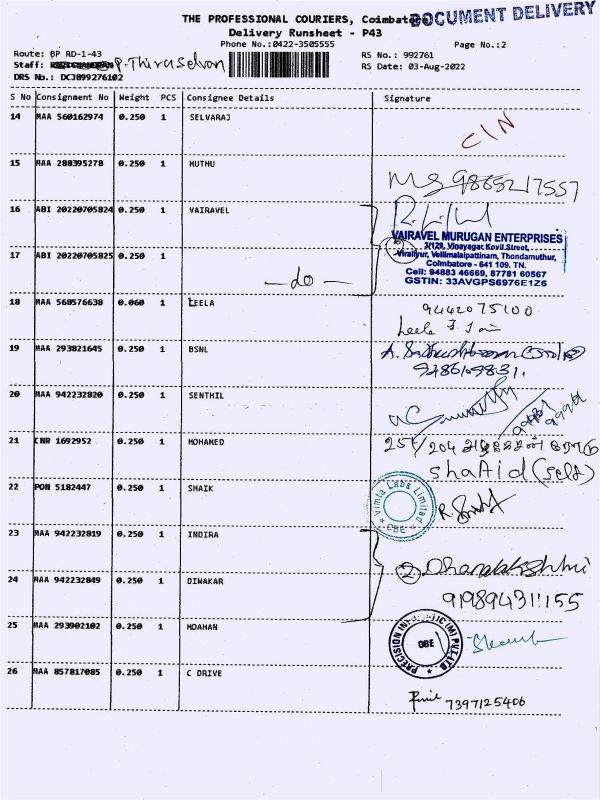 THE PROFESSIONAL COURIERS, Coimbatore
DOCUMENT DELIVERY
Delivery Runsheet - P43
Phone No.:0422-3505555
Page No.:2
Route: BP RD-1-43
RS No.: 992761
Staff: P. Thiruselvan
RS Date: 03-Aug-2022
DRS No.: DCJ899276102
S No Consignment No Weight PCS Consignee Details Signature
14 MAA 560162974 0.250 1 SELVARAJ
CIN
15 MAA 288395278 0.250 1 MUTHU
9865217557
16 ABI 20220705824 0.250 1 VAIRAVEL
VAIRAVEL MURUGAN ENTERPRISES
3/129, Vinayagar Kovil Street,
Viraliyur, Vellimalaipattinam, Thondamuthur,
Coimbatore - 641 109. TN.
Cell: 94883 46669, 87781 60567
GSTIN: 33AVGPS6976E1Z6
17 ABI 20220705825 0.250 1
— do —
18 MAA 568576638 0.060 1 LEELA
9442075100
Leela
19 MAA 293821645 0.250 1 BSNL
20 MAA 942232820 0.250 1 SENTHIL
21 CNR 1692952 0.250 1 MOHAMED
257/204
Shahid (self)
22 PON 5182447 0.250 1 SHAIK
Vimta Labs Limited
CBE
23 MAA 942232819 0.250 1 INDIRA
24 MAA 942232849 0.250 1 DIWAKAR
② Dhanalakshmi
919894311155
25 MAA 293902102 0.250 1 MOAHAN
CBE
26 MAA 857817085 0.250 1 C DRIVE
7397125406